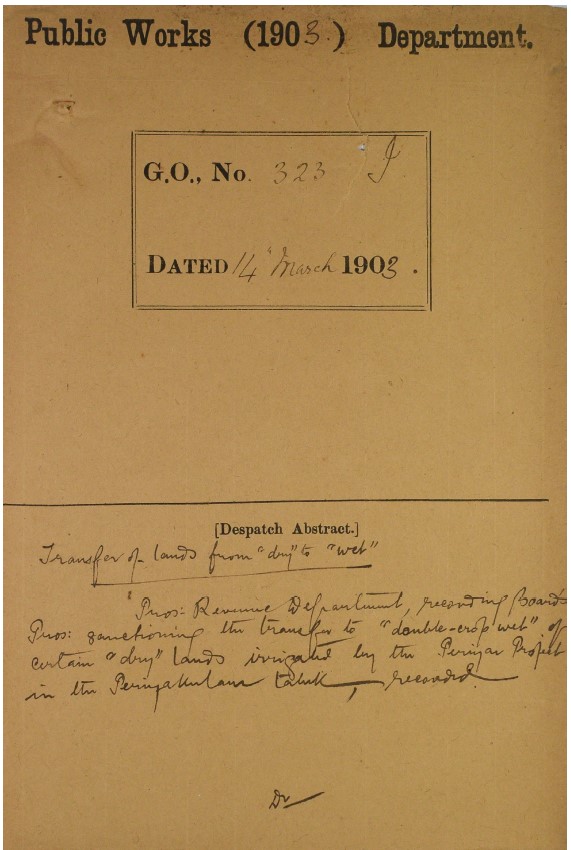 Public Works (1903.) Department.
G.O., No. 323 I
DATED 14 March 1903.
[Despatch Abstract.]
Transfer of lands from "dry" to "wet"
Pros: Revenue Department, recording Board's
Pros: sanctioning the transfer to "double-crop wet" of
certain "dry" lands irrigated by the Periyar Project
in the Periyakulam taluk, recorded